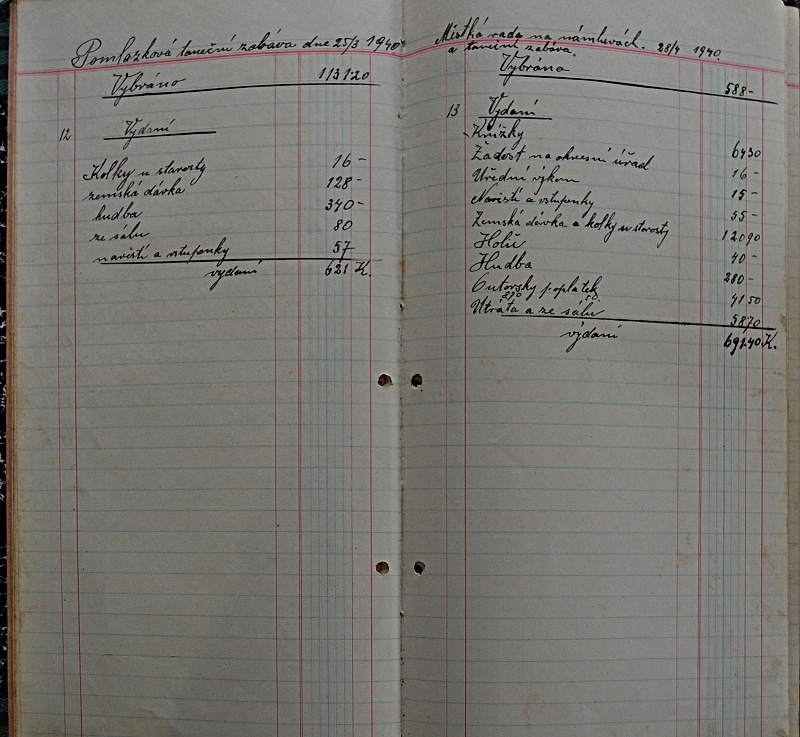 Pomlazková taneční zábava dne 25/3 1940
Vybráno 1131 20
12 Vydaní
Kolky u starosty 16 -
zemská dávka 128 -
hudba 340 -
ze sálu 80
navěstí a vstupenky 57
vydaní 621 K.
Místká rada na námluvách. 28/4 1940.
a taneční zábava.
Vybráno 588 -
13 Vydaní
Knížky 64 30
Žádost na okresní úřad 16 -
Uřední výkon 15 -
Navěstí a vstupenky 55 -
Zemská dávka a kolky u starosty 120 90
Holič 40 -
Hudba 280 -
poplatek 41 50
Utráta a ze sálu 58 70
výdaní 691.40 K.